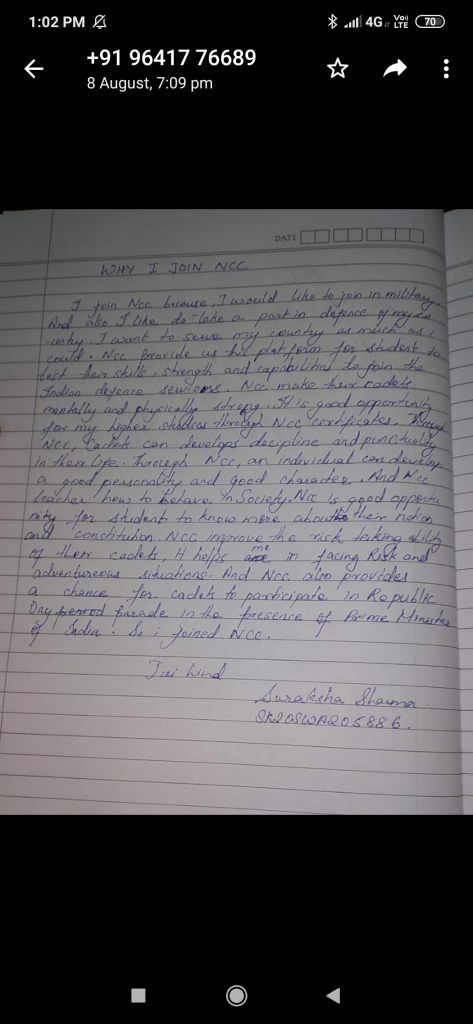 1:02 PM
4G
Vo))
LTE
70
+91 96417 76689
8 August, 7:09 pm
DATE
WHY I JOIN NCC
I join Ncc because, I would like to join in military.
And also I like to take a part in defence of my co
untry. I want to serve my country as much as i
could. Ncc provide us this platform for student to
test their skills, strength and capabilities to join the
Indian defence services. Ncc make their cadets
mentally and physically strong. It is good opportunity
for my higher studies through Ncc certificates. Through
NCC, Cadets can develops decipline and punctuality
in their life. Through Ncc, an individual can develop
a good personality and good character. And Ncc
teacher how to behave in Society. Ncc is good opportu
nity for student to know more about their nation
and constitution. NCC improve the risk taking ability
of their cadets, It helps me in facing Risk and
adventureous situations. And Ncc also provides
a chance for cadets to participate in Republic
Day period parade in the presence of Prime Minister
of India. So i joined NCC.
Jai hind
Surakcha Sharma
SK20SWA205886.